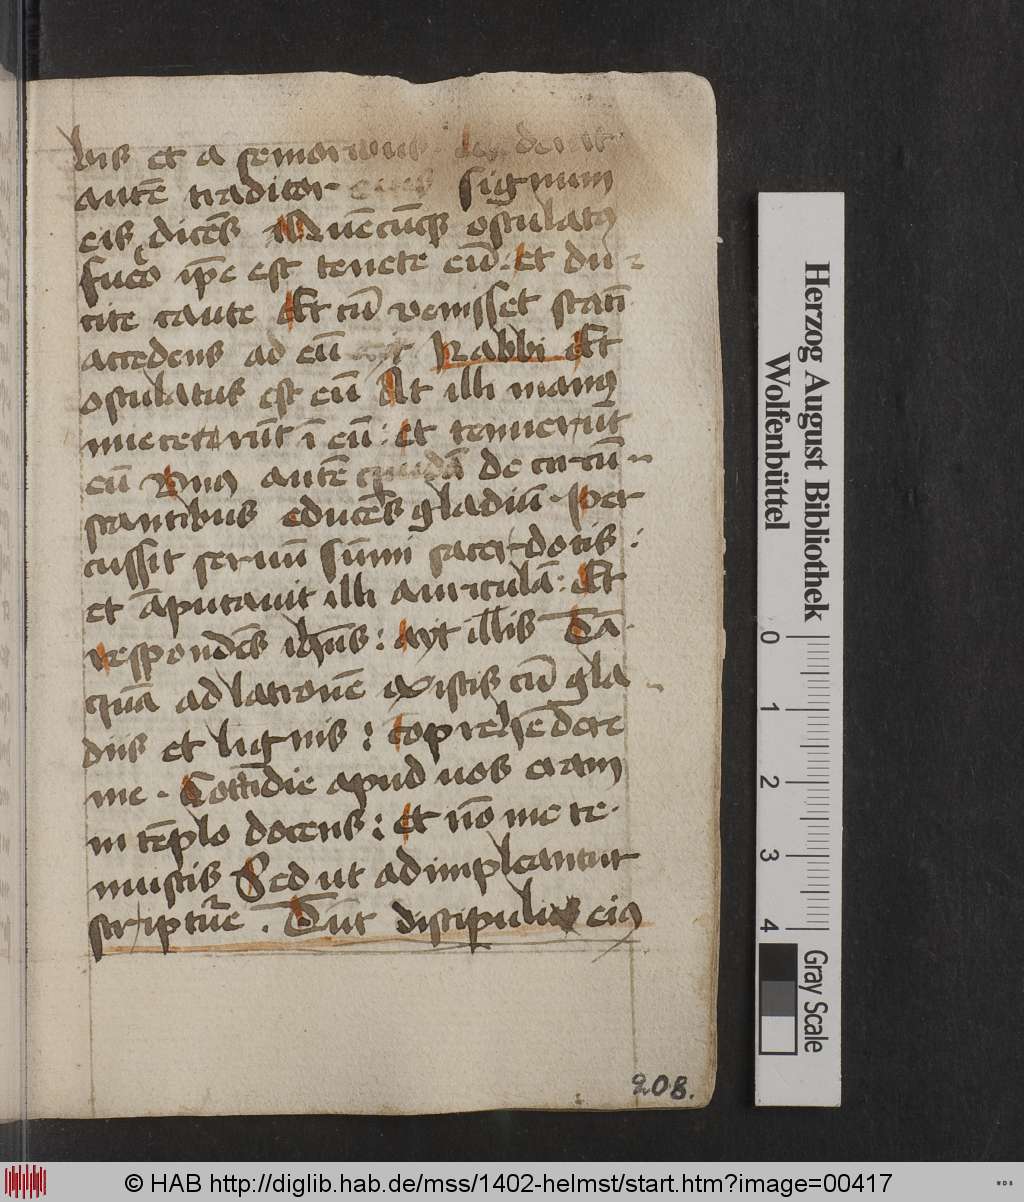 bis et a semoribus. dederat
autē traditor eius signum
eis dicēs Quēcūqꝫ osculatꝰ
fuēo ip̄e est tenete eū. et du
cite caute Et cū venisset statī
accedens ad eū ait Rabbi Et
osculatus est eū At illi manꝰ
iniecerūt ī eū: et tenuerūt
eū Vnꝰ autē quidā de circū
stantibus educēs gladiū. per
cussit seruū sūmi sacerdotis:
et āputauit illi auriculā: Et
respondēs ihūs: ayt illis Tā
quā ad latronē existis cū gla
diis et lignis: cōprehēdere
me. Cottidie apud uos eram
in tēplo docens: et nō me te
nuistis Sed ut adimpleantur
scriptūe. Tūt discipuli eiꝰ
208.
Herzog August Bibliothek
Wolfenbüttel
0 1 2 3 4
Gray Scale
© HAB http://diglib.hab.de/mss/1402-helmst/start.htm?image=00417